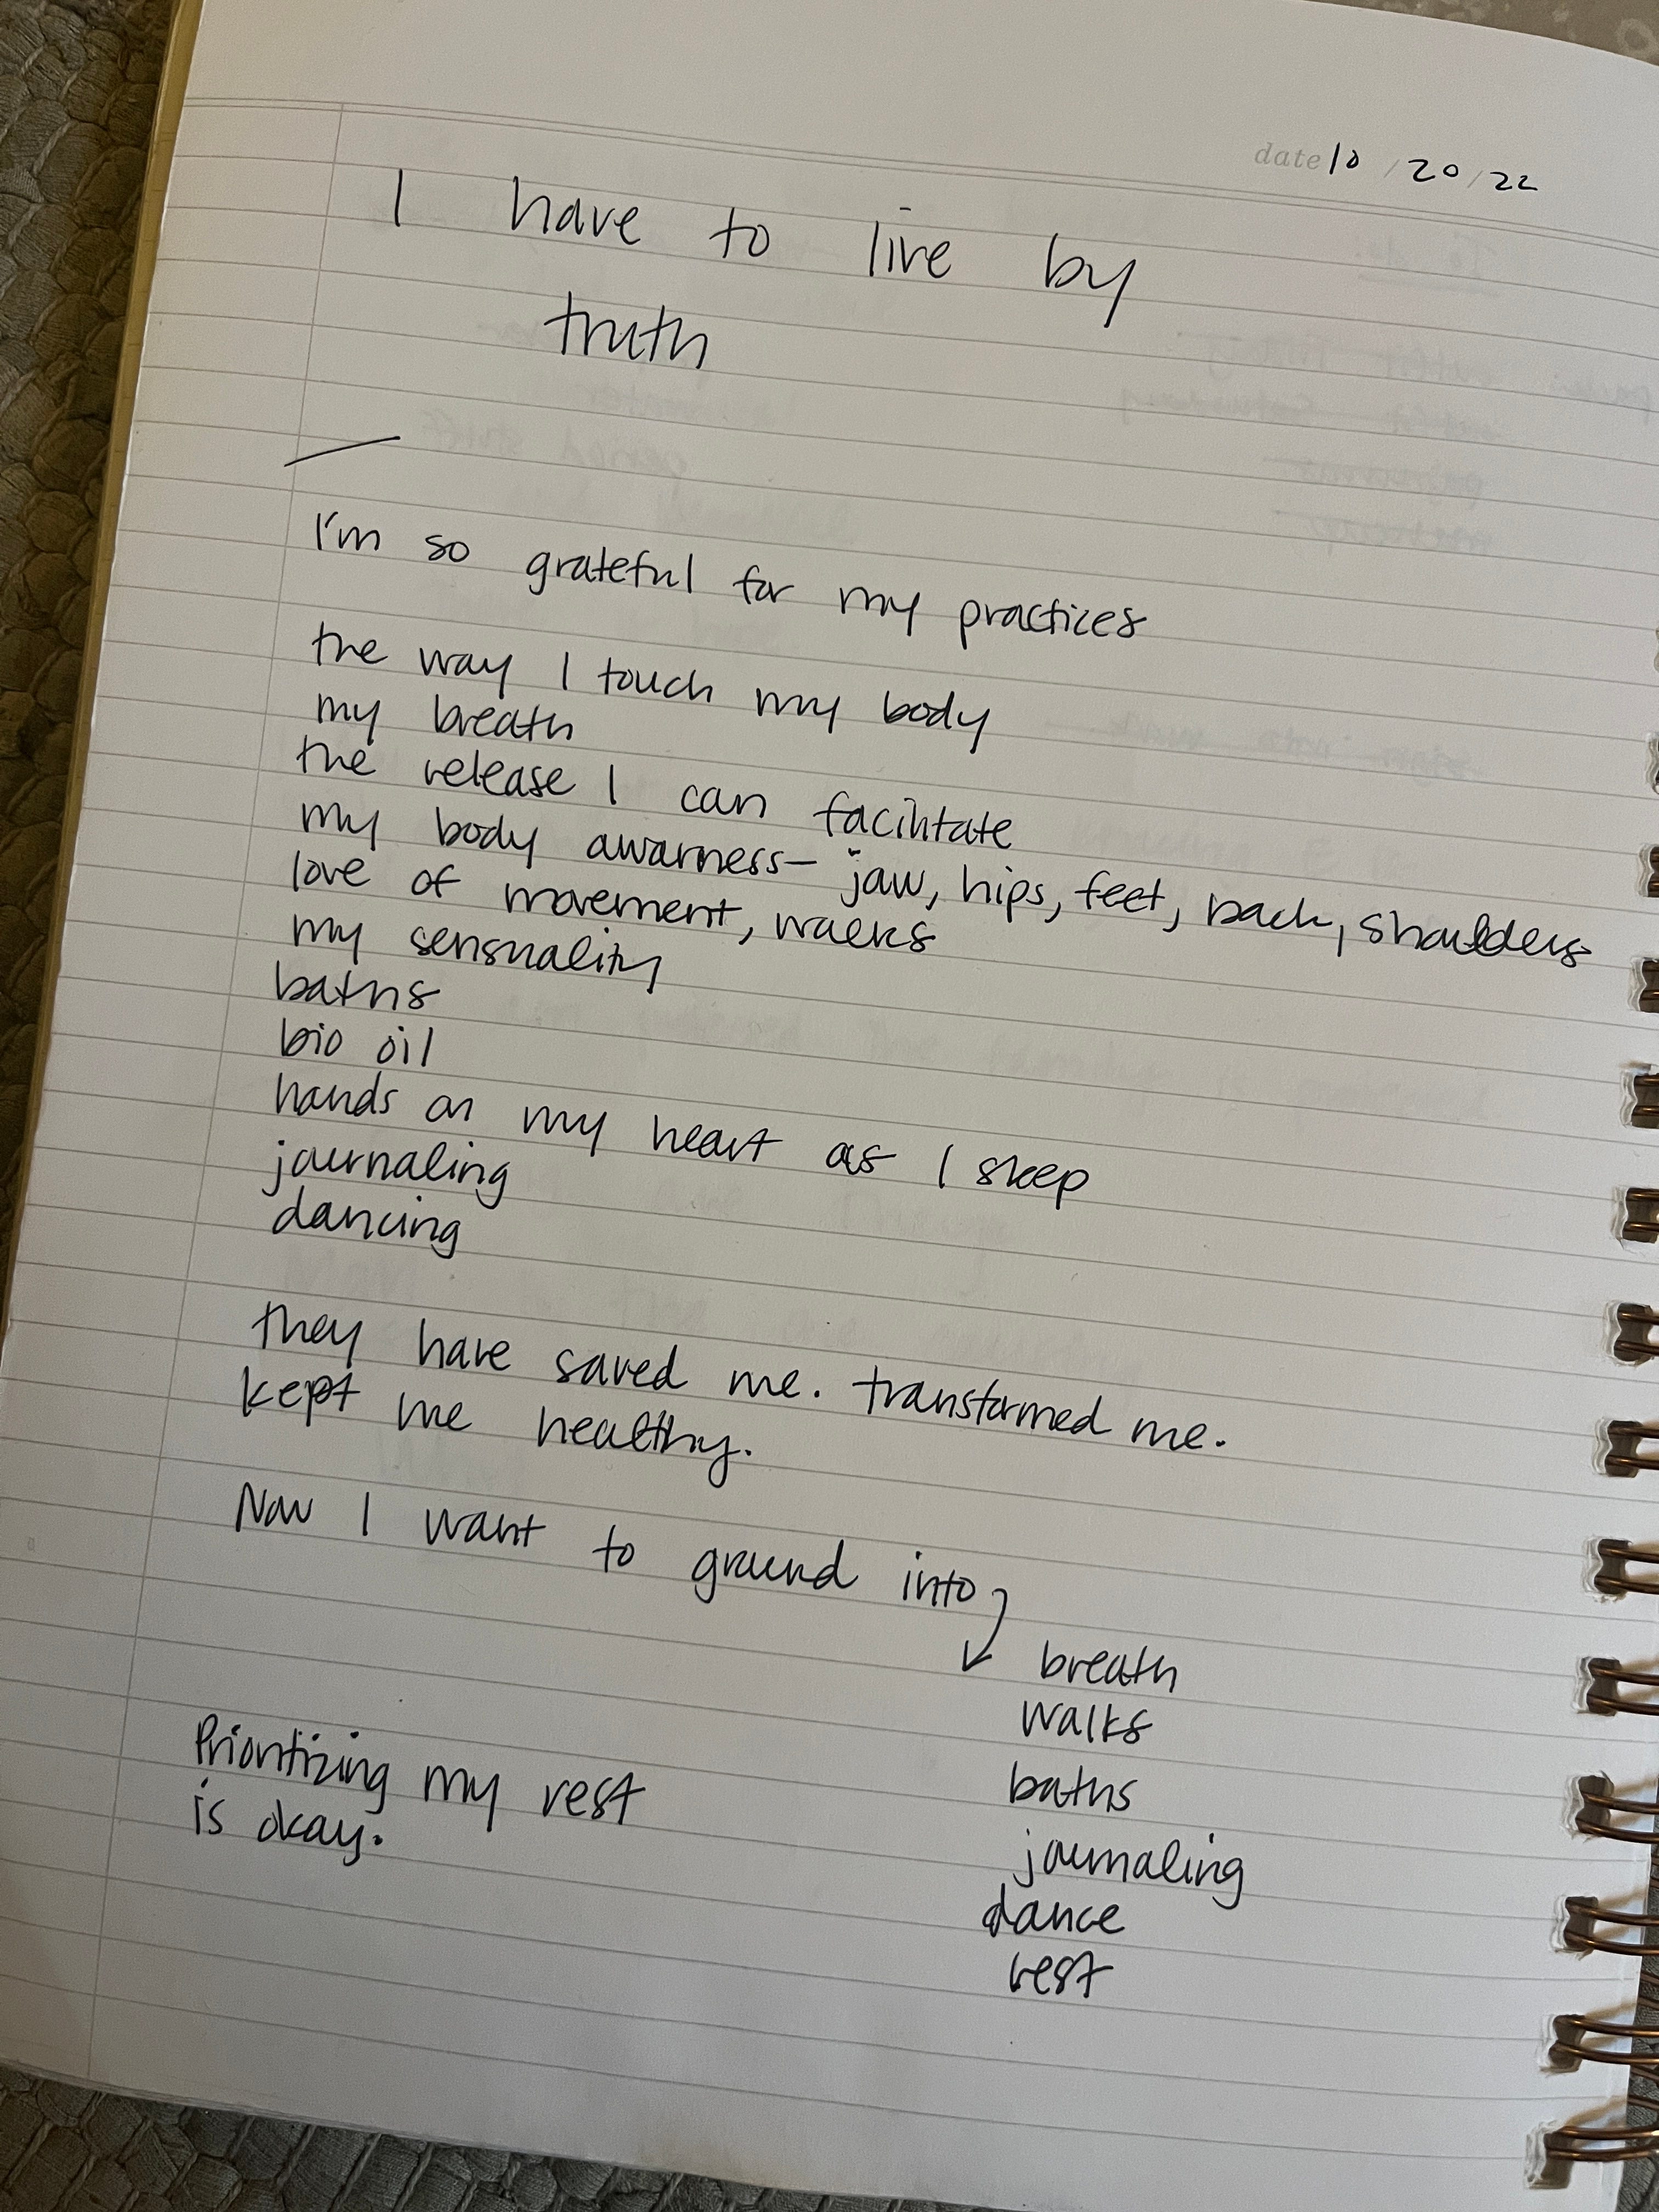 date 10/20/22
I have to live by
truth
I'm so grateful for my practices
the way I touch my body
my breath
the release I can facilitate
my body awarness- jaw, hips, feet, back, shoulders
love of movement, walks
my sensuality
baths
bio oil
hands on my heart as I sleep
journaling
dancing
they have saved me. transformed me.
kept me healthy.
Now I want to ground into
breath
walks
baths
Prioritizing my rest
is okay.
journaling
dance
rest